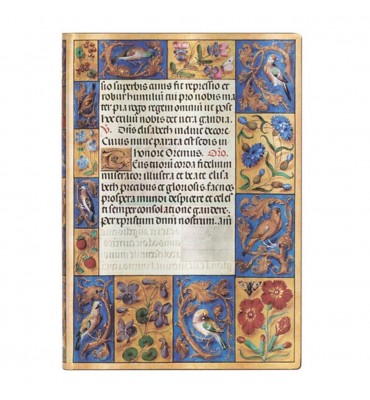 sio superbis cuius fit repressio et
robur humiliū tu pro nobis ma
ter pia rego regem omniū ut post
hoc exiliū nobis det vera gaudia.
℣. Dn̄s elisabeth induit decore
Cuius nunc parata est sedis in
honore Oremus. Oro.
corda fidelium
miserator illustra et beate eli
sabeth precibus et gloriosis fac nos
prospera mundi despicere et celes
ti semper consolatione gaudere.
Per dn̄m nostrum. am̄